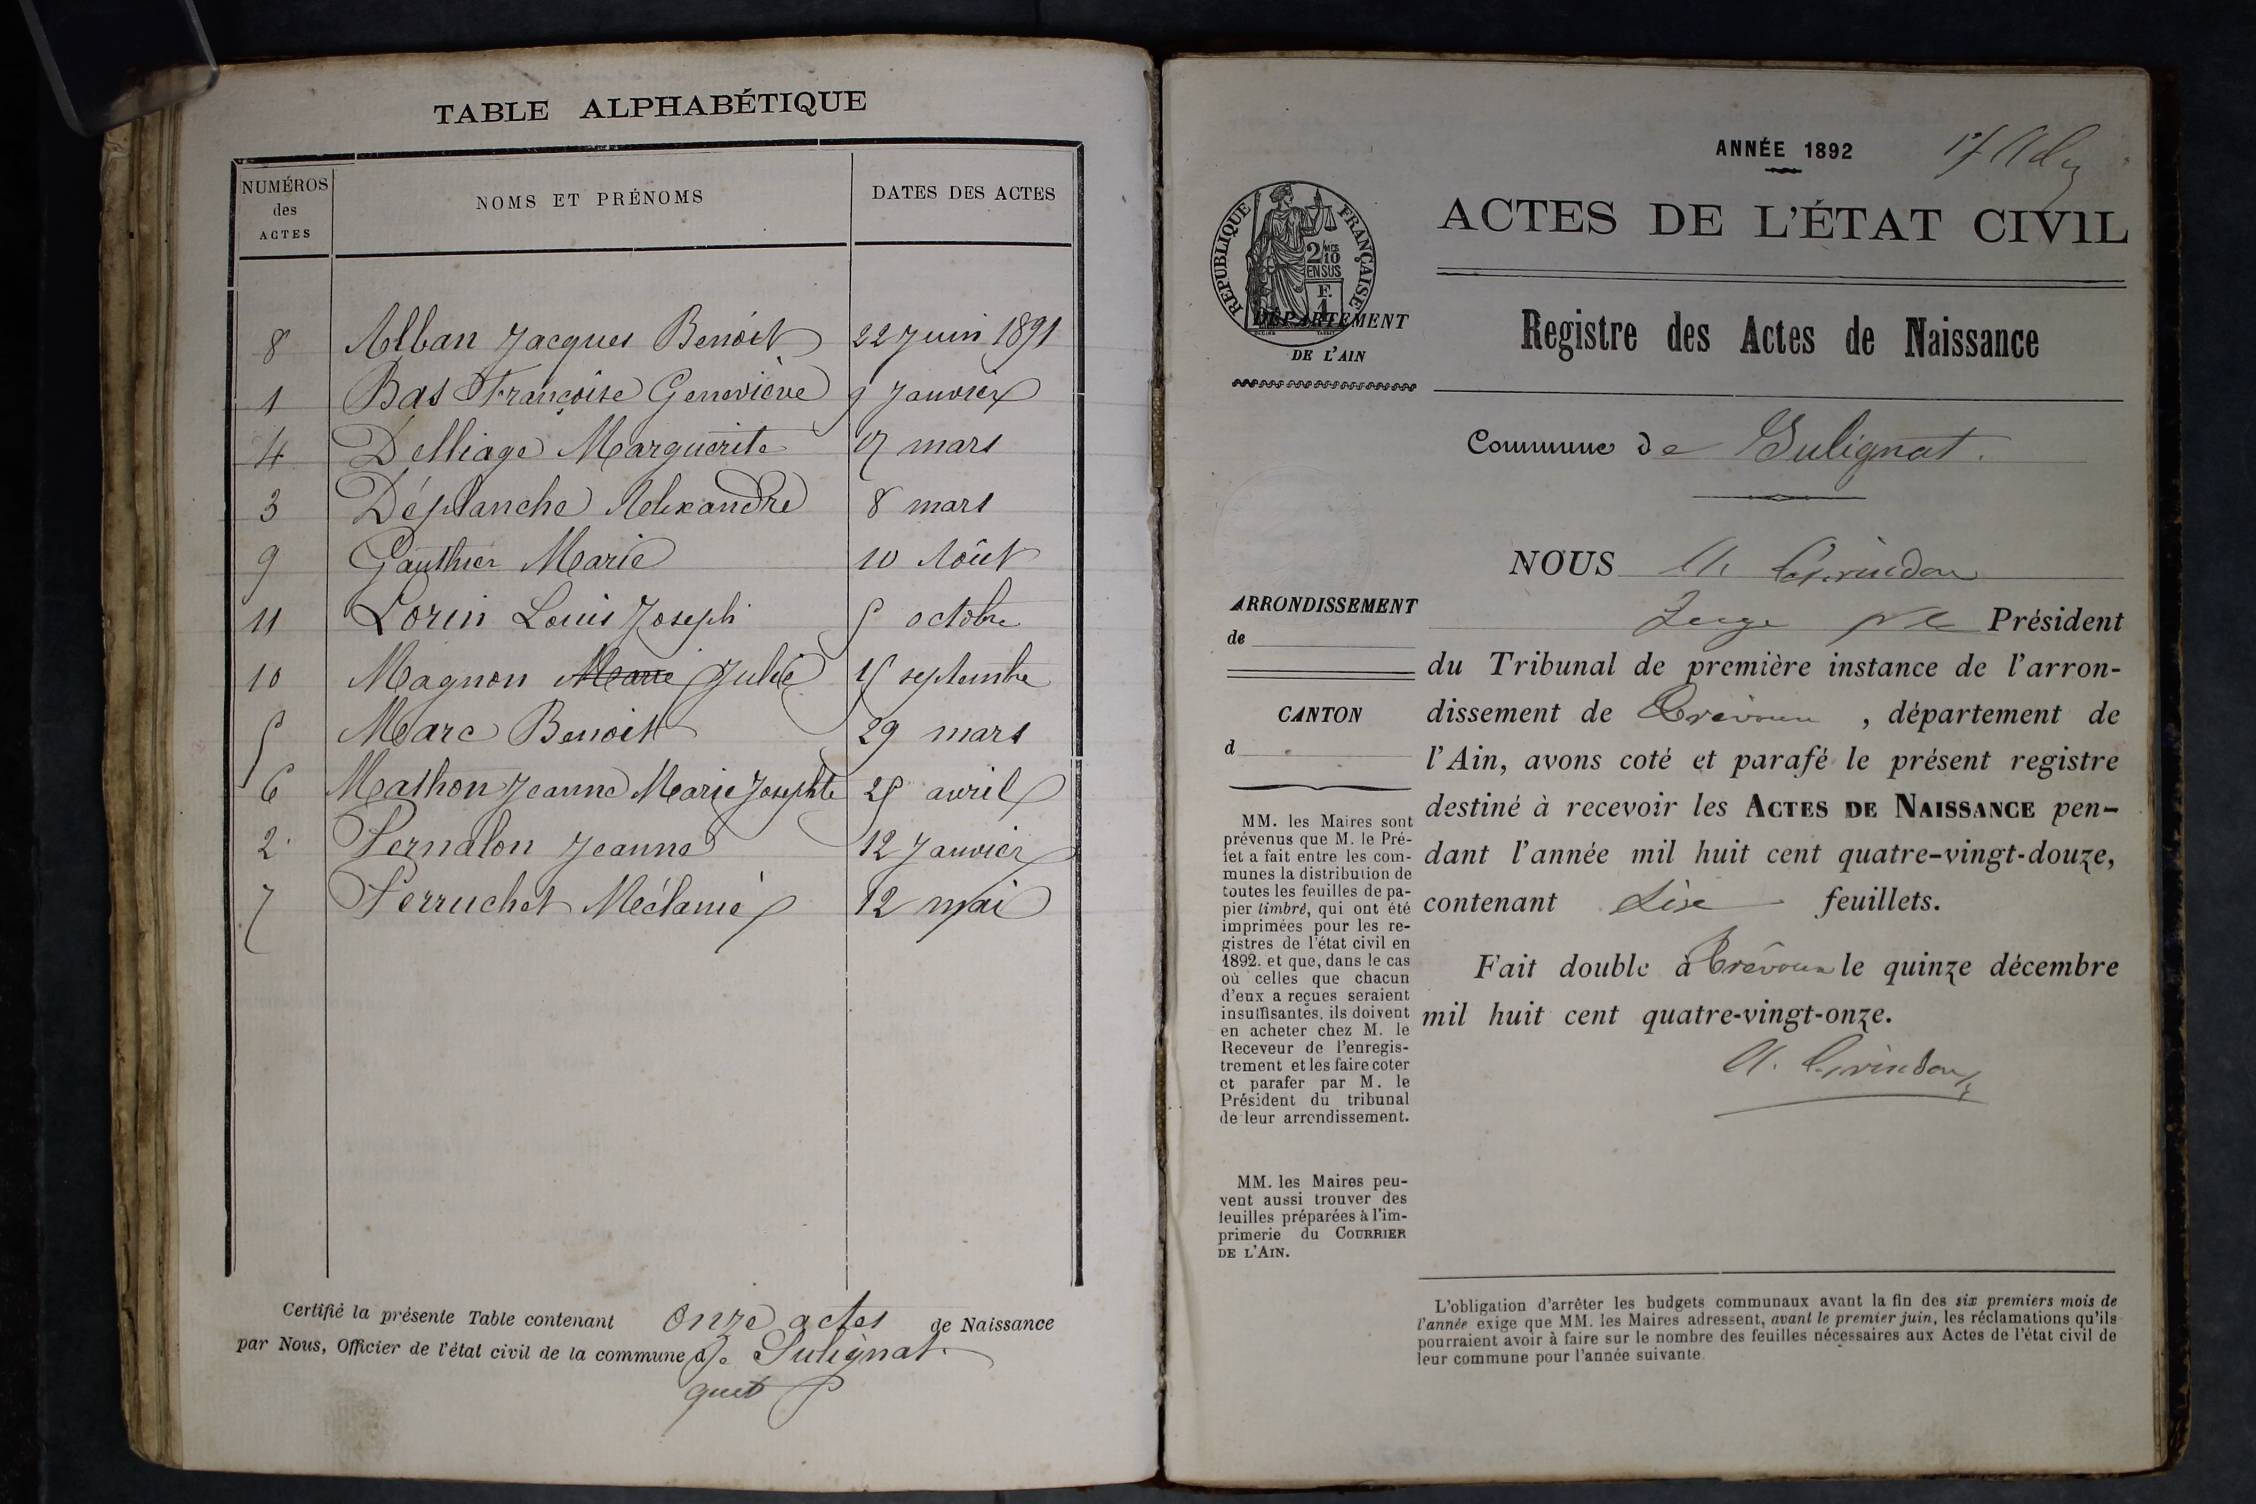 TABLE ALPHABÉTIQUE
NUMÉROS des ACTES
NOMS ET PRÉNOMS
DATES DES ACTES
8 Alban Jacques Benoit 22 Juin 1891
1 Bas Françoise Geneviève 9 Janvier
4 Delliage Marguerite 17 mars
3 Déplanche Alexandre 8 mars
9 Gauthier Marie 10 Août
11 Lorin Louis Joseph 5 octobre
10 Magnon Marie Julie 15 septembre
5 Marc Benoit 29 mars
6 Mathon Jeanne Marie Josephte 25 avril
2 Pernalon Jeanne 12 Janvier
7 Perruchet Mélanie 12 mai
Certifié la présente Table contenant onze actes de Naissance
par Nous, Officier de l'état civil de la commune de Sulignat
ANNÉE 1892
RÉPUBLIQUE FRANÇAISE
2/10 EN SUS
F. 1
ACTES DE L'ÉTAT CIVIL
DÉPARTEMENT
DE L'AIN
Registre des Actes de Naissance
Commune de Sulignat.
ARRONDISSEMENT
de
CANTON
d
MM. les Maires sont
prévenus que M. le Pré-
fet a fait entre les com-
munes la distribution de
toutes les feuilles de pa-
pier timbré, qui ont été
imprimées pour les re-
gistres de l'état civil en
1892. et que, dans le cas
où celles que chacun
d'eux a reçues seraient
insuffisantes, ils doivent
en acheter chez M. le
Receveur de l'enregis-
trement et les faire coter
et parafer par M. le
Président du tribunal
de leur arrondissement.
MM. les Maires peu-
vent aussi trouver des
feuilles préparées à l'im-
primerie du COURRIER
DE L'AIN.
NOUS
Juge Président
du Tribunal de première instance de l'arron-
dissement de Trévoux, département de
l'Ain, avons coté et parafé le présent registre
destiné à recevoir les ACTES DE NAISSANCE pen-
dant l'année mil huit cent quatre-vingt-douze,
contenant dix feuillets.
Fait double à Trévoux le quinze décembre
mil huit cent quatre-vingt-onze.
L'obligation d'arrêter les budgets communaux avant la fin des six premiers mois de
l'année exige que MM. les Maires adressent, avant le premier juin, les réclamations qu'ils
pourraient avoir à faire sur le nombre des feuilles nécessaires aux Actes de l'état civil de
leur commune pour l'année suivante.